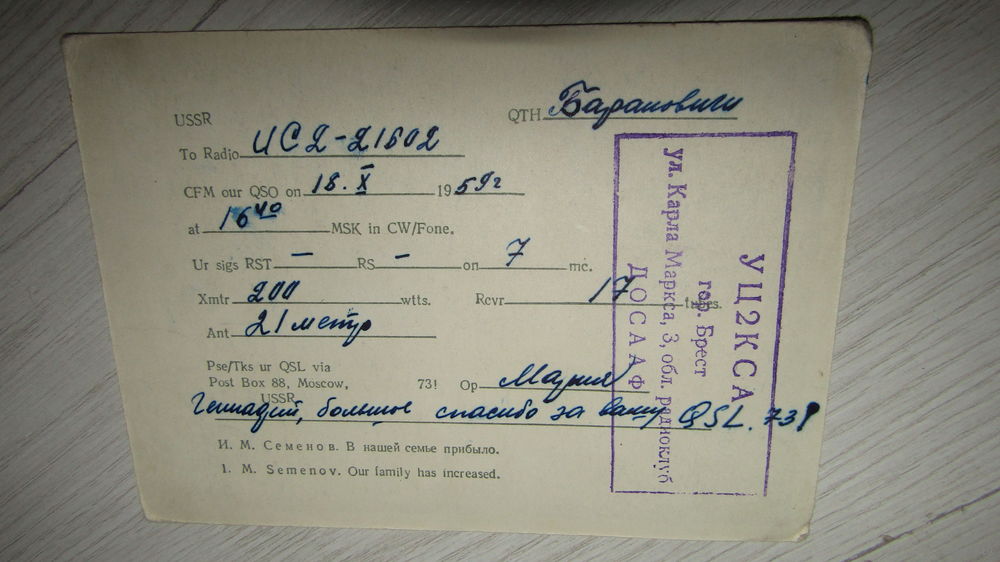 USSR
QTH Барановичи
To Radio ИС2-21602
CFM our QSO on 18. X 1959г
at 16 40 MSK in CW/Fone.
Ur sigs RST — RS — on 7 mc.
Xmtr 200 wtts. Rcvr 17 tubes.
Ant 21 метр
Pse/Tks ur QSL via
Post Box 88, Moscow,
USSR
73! Op Мария
Геннадий, большое спасибо за вашу QSL. 73!
И. М. Семенов. В нашей семье прибыло.
I. M. Semenov. Our family has increased.
УЦ2КСА
гор. Брест
ул. Карла Маркса, 3, обл. радиоклуб
ДОСААФ